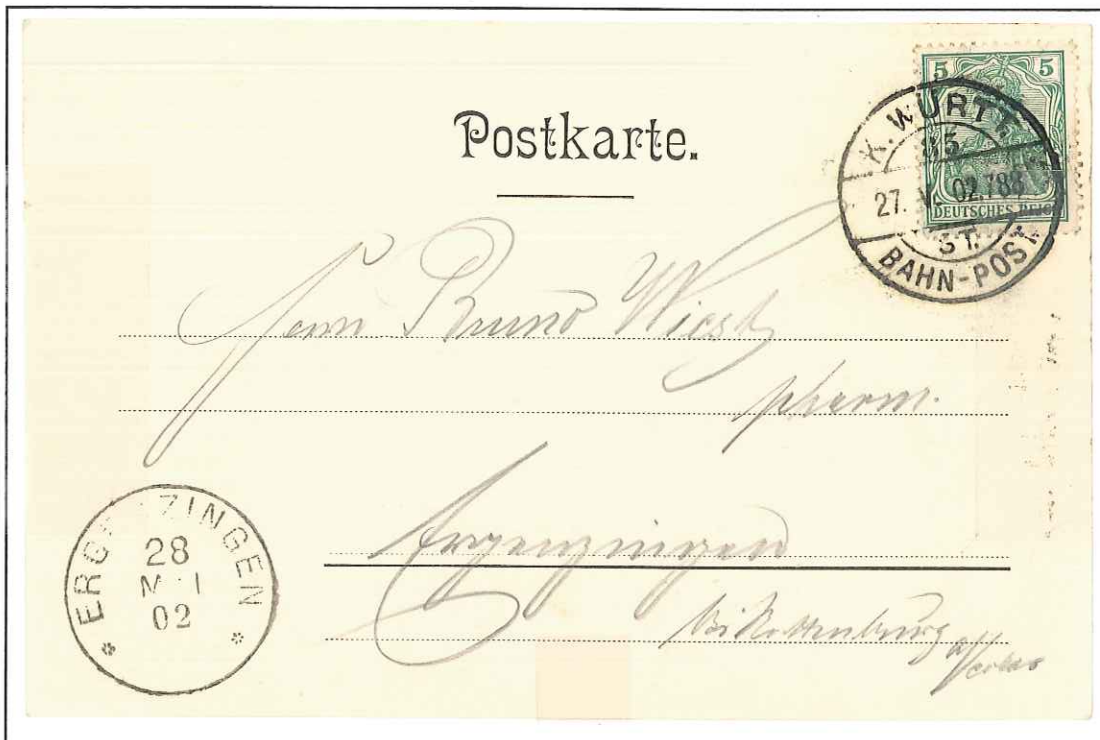 Postkarte.
5 5
DEUTSCHES REICH
K. WÜRTT.
27. V. 02. 788
ST.
BAHN-POST
Herrn Bruno Wiest
pharm.
Ergenzingen
bei Rottenburg
ERGENZINGEN
28
MAI
02